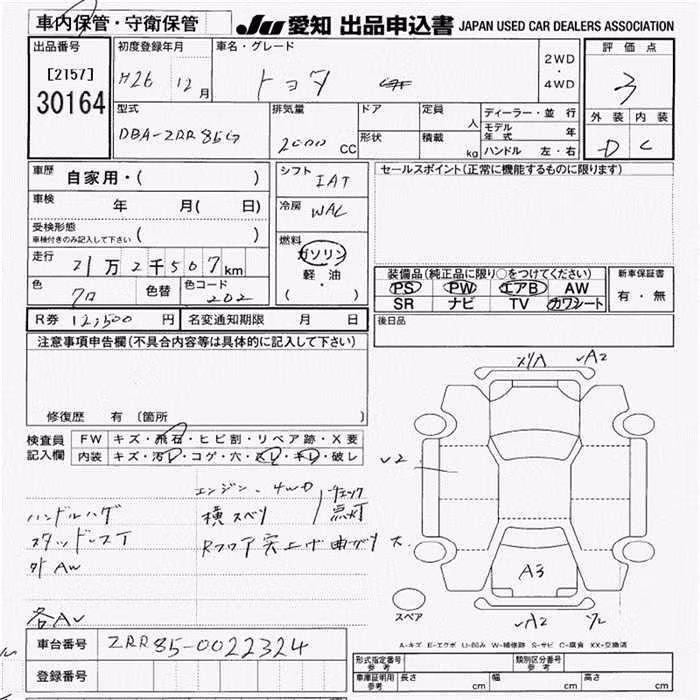 車内保管・守衛保管
JU 愛知 出品申込書 JAPAN USED CAR DEALERS ASSOCIATION
出品番号
[2157]
30164
初度登録年月
H26 12月
車名・グレード
トヨタ
2WD
・
4WD
評価点
3
外装 内装
D C
型式
DBA-ZRR85G
排気量
2000 CC
ドア
形状
定員
人
積載
kg
ディーラー・並行
モデル年式 年
ハンドル 左・右
車歴 自家用・( )
車検 年 月( 日)
受検形態
車検付きのみ記入して下さい ( )
走行 21万2千507km
色 クロ 色替 色コード 202
シフト IAT
冷房 WAC
燃料
ガソリン
・
軽・油
( )
セールスポイント(正常に機能するものに限ります)
装備品(純正品に限り○をつけてください)
PS PW エアB AW
SR ナビ TV カワシート
新車保証書
有・無
R券 12,500円 名変通知期限 月 日
後日品
注意事項申告欄(不具合内容等は具体的に記入して下さい)
修復歴 有 〔箇所 〕
検査員
記入欄
FW キズ・飛石・ヒビ割・リペア跡・X要
内装 キズ・汚レ・コゲ・穴・スレ・キレ・破レ
エンジン、4WD チェック
点灯
ハンドルハゲ 横スベリ
スタッドレスT Rフロア突上げ曲ガリ大
外AW
各AU
A2
A3
A2
スペア
A-キズ E-エクボ U-凹み W-補修跡 S-サビ C-腐食 XX-交換済
車台番号 ZRR85-0022324
登録番号
形式指定番号 参考
類別区分番号 参考
車庫証明用 参考 長さ cm 幅 cm 高さ cm